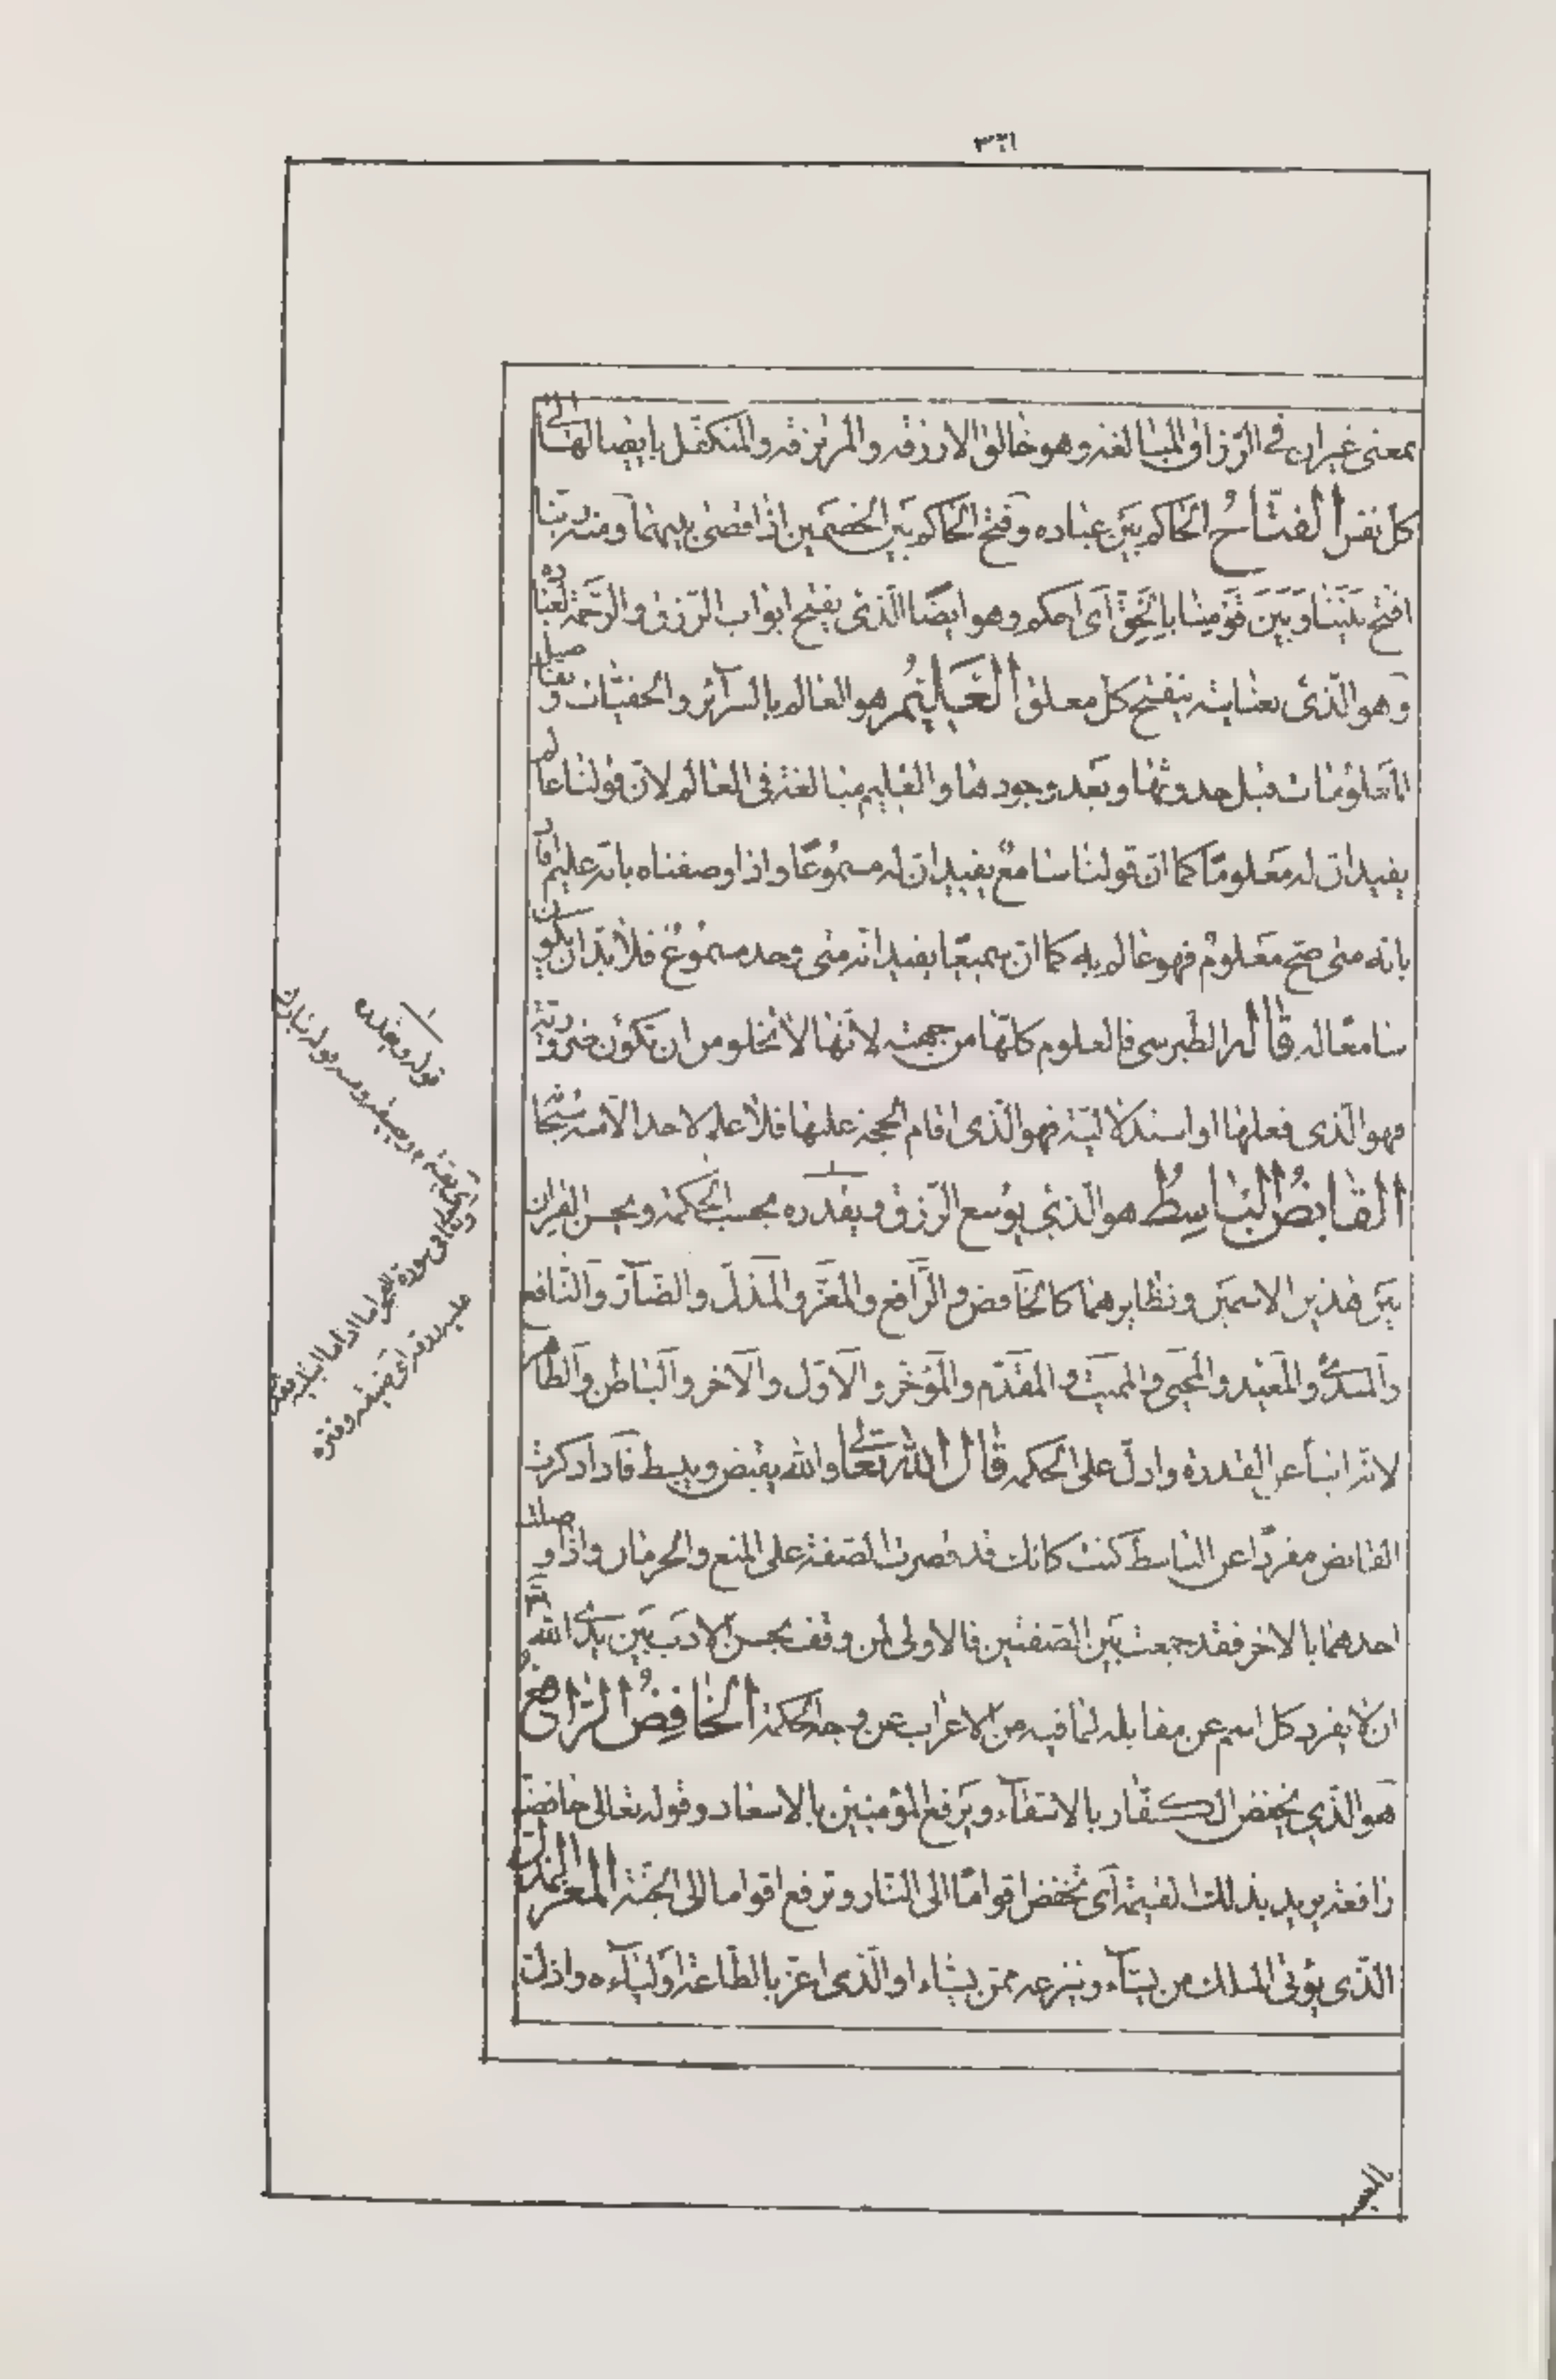 ٣٢١
بمعنى غير ان في الرّزاق المبالغة وهو خالق الارزقة والمرتزقة والمتكفّل بايصالها الى
كل نفس الفتّاحُ الحاكم بَين عباده وفتح الحاكم بَين الخصَمين اذا قضى بينهما ومنه ربّنا
افتح بَيْنَنا وَبَيْنَ قَوْمِنا بِالْحَقِّ اَى احكم وهو ايضًا الّذى يفتح ابواب الرّزق والرّحمَة لعباده
وهو الّذى بعنايته ينفتح كل مغلق الْعَليمُ هو العالم بالسرآئر والخفيّات وتفاصيل
المَعلوُمات قبل حدوثها وبَعد وجودها والعَليم مبالغة فى العالم لانّ قولنا عالم
يفيد انّ له مَعلومًا كما انّ قولنا سامعٌ يفيد انّ له مسموُعًا واذا وصفناه بانّه عليم افاد
بانه متى صح مَعلومٌ فهو عالم به كما انّ سميعًا يفيد انّه متى وجد مسموُعٌ فلا بدّ ان يكون
سامعًا له قال الطّبرسى فالعلوم كلّها من جهته لانّها لا تخلو من ان تكوُن ضروريّة
فهو الّذى فعلها او استدلاليّة فهو الّذى اقام الحجة عليها فلا علم لاحد الّا منه سُبحانه
القابضُ الباسِطُ هو الّذى يوُسع الرّزق ويقدره بحسب الحكمة ويحسن القِران
بَين هذين الاسمَين ونظايرهما كالخَافض والرَّافع والمعَزّ والمذلّ والضّآرّ والنّافع
وَالمبدئ والمَعيد والمحَيى والمميَت والمقدّم والمَؤخّر والاَوّل والاَخر والَباطن والَظاهر
لانّه انبأ عن القدرة وادلّ على الحكمه قال الله تعَالى والله يقبض ويبسط فَاذا ذكرت
القابض مفردًا عن الباسط كنت كانك قد قصرت الصّفة على المنع والحرمان واذا وصلت
احدهما بالاخر فقد جمعت بَين الصّفتين فالاولى لمن وقف بحسن الادَب بَين يدى الله تعالى
ان لا يفرد كل اسم عن مقابله لما فيه من الاعراب عن وجه الحكمة الخافِضُ الرّافعُ
هو الّذى يخفض الكفّار بالاشقاء ويَرفع المؤمنين بالاسعاد وقوله تعالى خافضة
رافعة يريد بذلك القيمة اَى تخفض اقوامًا الى النّار وترفع اقواما الى الجَنّة المعزّ المذلّ
الّذى يؤتى الملك من يشآء وينزعه ممّن يشاء او الّذى اعزّ بالطّاعة اوليآءه واذلّ
قوله ويقدره